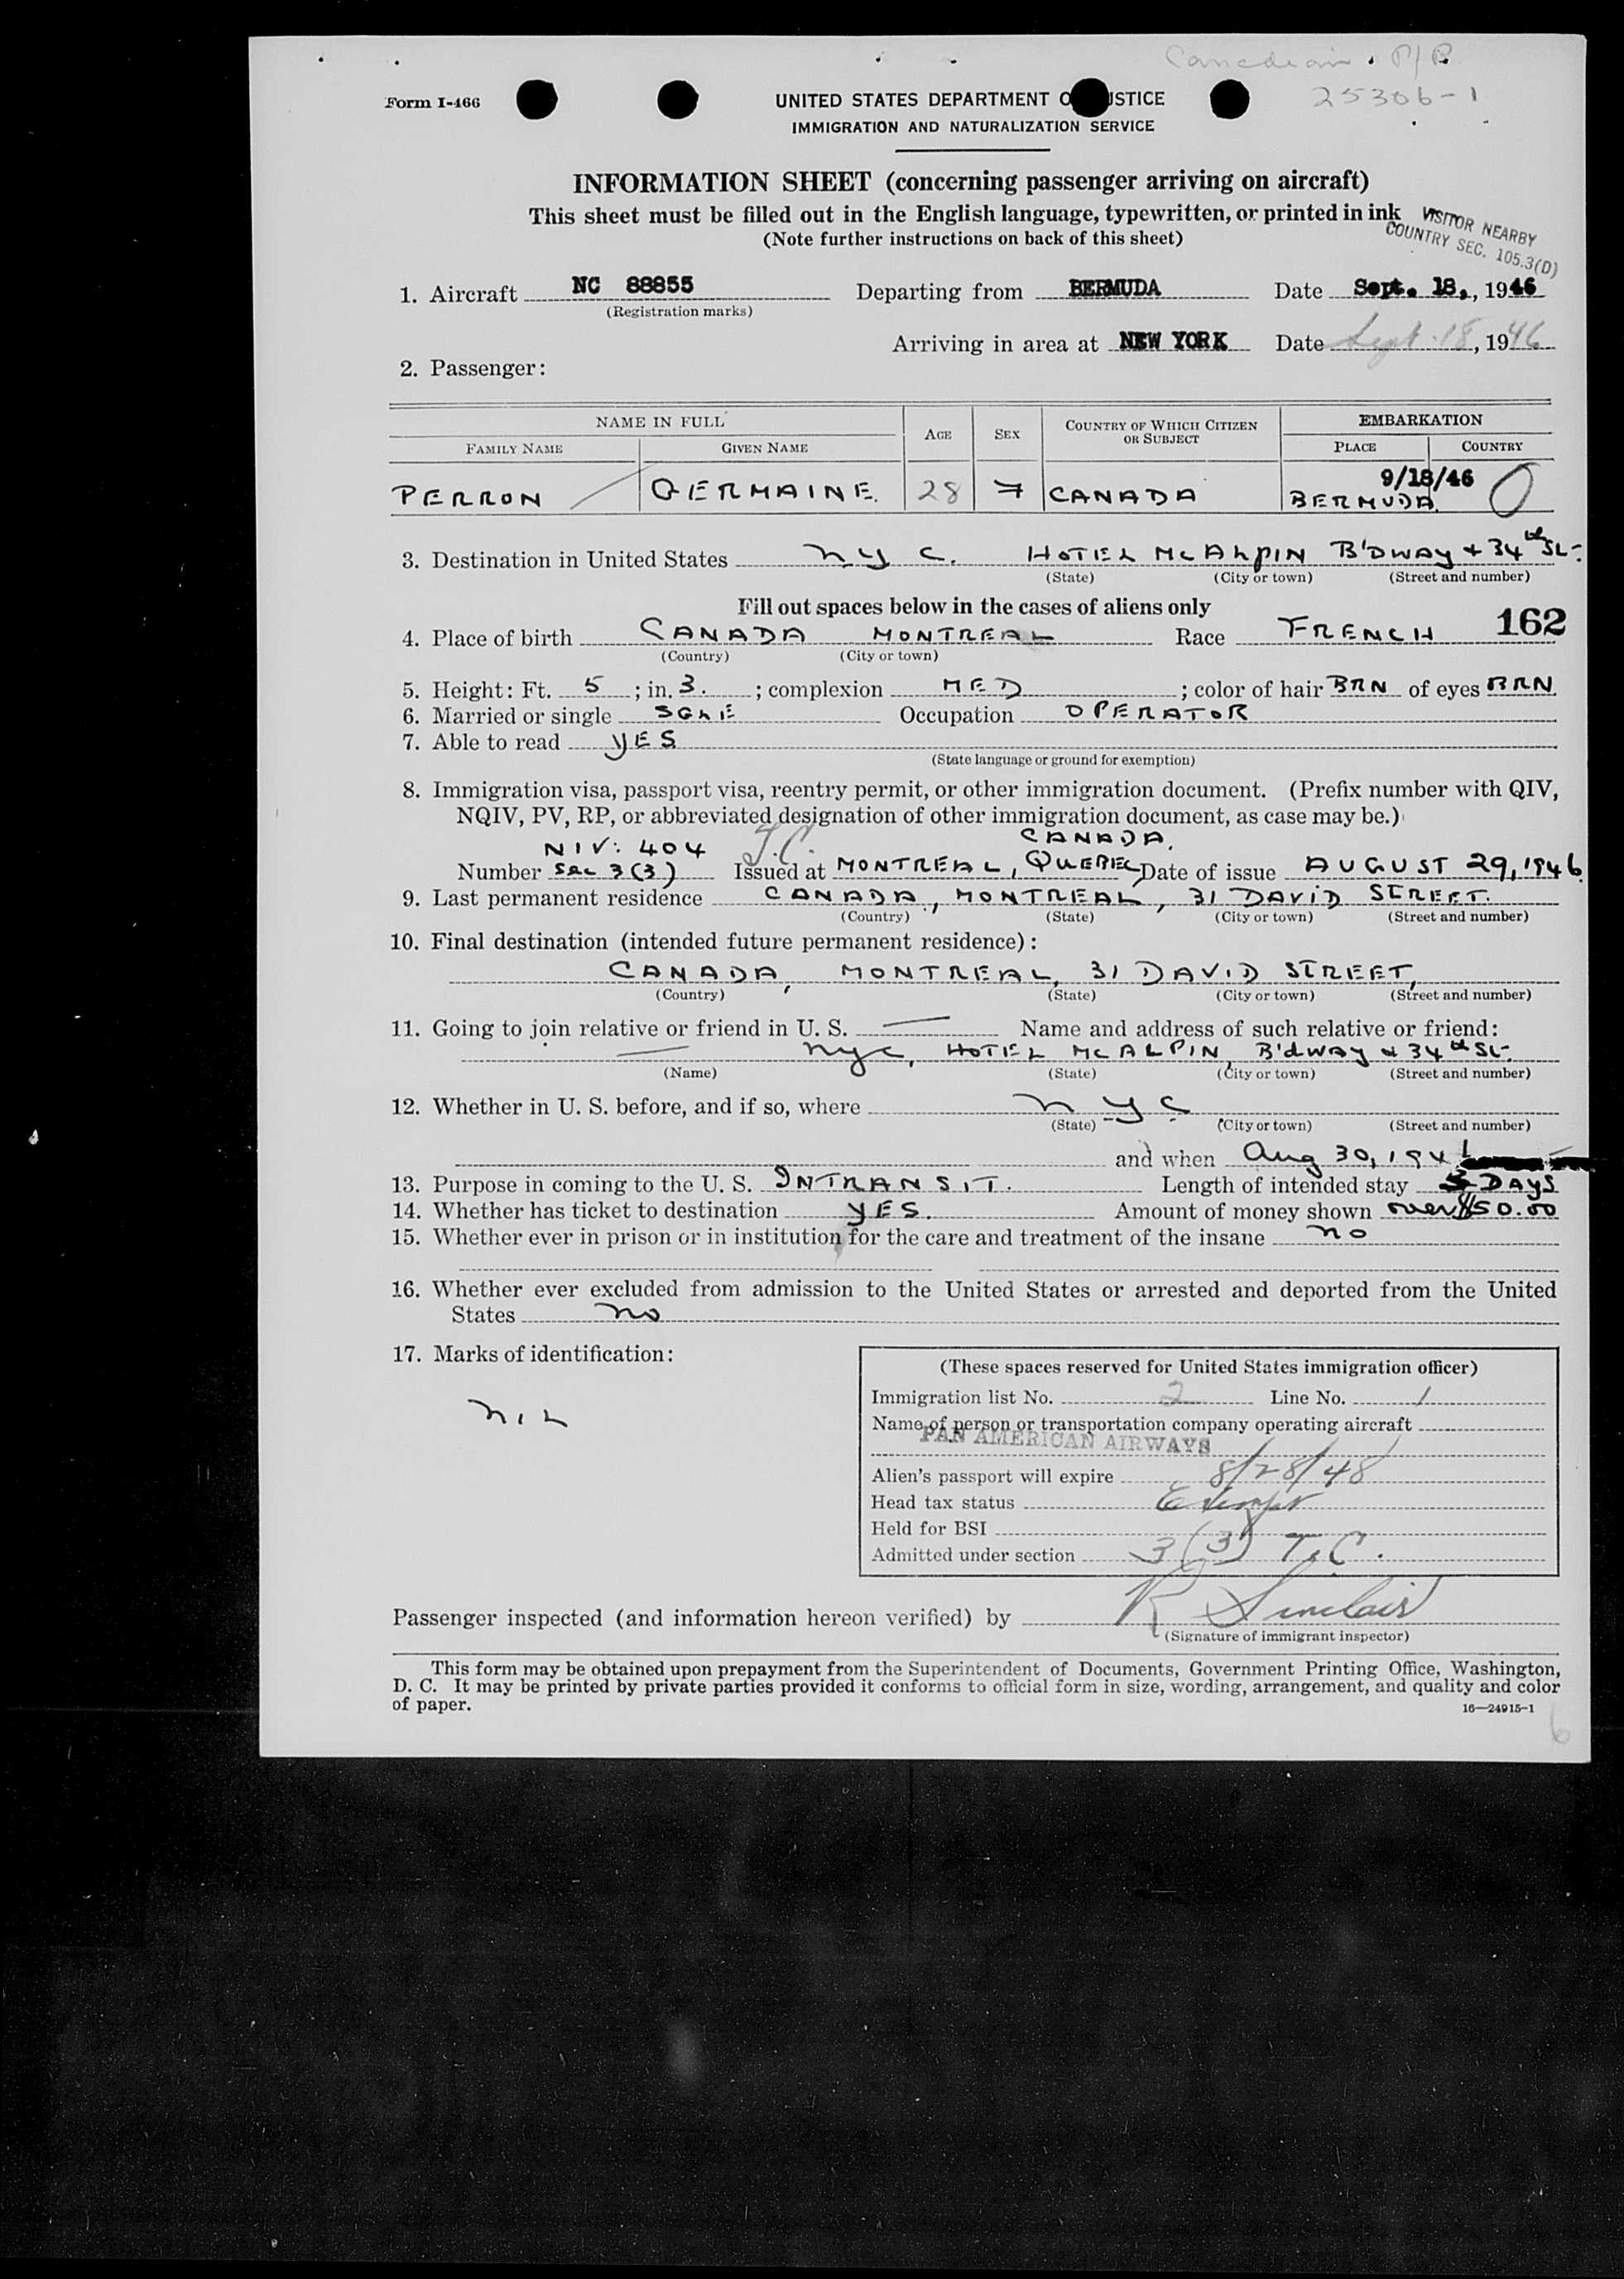 Canadian P/P
Form I-466 UNITED STATES DEPARTMENT OF JUSTICE 25306-1
IMMIGRATION AND NATURALIZATION SERVICE
INFORMATION SHEET (concerning passenger arriving on aircraft)
This sheet must be filled out in the English language, typewritten, or printed in ink
(Note further instructions on back of this sheet)
VISITOR NEARBY
COUNTRY SEC. 105.3(D)
1. Aircraft NC 88855 Departing from BERMUDA Date Sept. 18,, 1946
(Registration marks)
Arriving in area at NEW YORK Date Sept. 18, 1946
2. Passenger:
NAME IN FULL AGE SEX COUNTRY OF WHICH CITIZEN OR SUBJECT EMBARKATION
FAMILY NAME GIVEN NAME PLACE COUNTRY
9/18/46
PERRON GERMAINE. 28 F CANADA BERMUDA.
3. Destination in United States NYC. HOTEL McALPIN B'DWAY + 34th St-
(State) (City or town) (Street and number)
Fill out spaces below in the cases of aliens only
4. Place of birth CANADA MONTREAL Race FRENCH 162
(Country) (City or town)
5. Height: Ft. 5; in. 3.; complexion MED; color of hair BRN of eyes BRN
6. Married or single SGLE Occupation OPERATOR
7. Able to read YES
(State language or ground for exemption)
8. Immigration visa, passport visa, reentry permit, or other immigration document. (Prefix number with QIV,
NQIV, PV, RP, or abbreviated designation of other immigration document, as case may be.)
NIV: 404 T.C. CANADA,
Number Sec 3(3) Issued at MONTREAL, QUEBEC Date of issue AUGUST 29, 1946
9. Last permanent residence CANADA, MONTREAL, 31 DAVID STREET.
(Country) (State) (City or town) (Street and number)
10. Final destination (intended future permanent residence):
CANADA, MONTREAL, 31 DAVID STREET,
(Country) (State) (City or town) (Street and number)
11. Going to join relative or friend in U. S. — Name and address of such relative or friend:
— NYC, HOTEL McALPIN, B'dWAY & 34th St-
(Name) (State) (City or town) (Street and number)
12. Whether in U. S. before, and if so, where NYC
(State) (City or town) (Street and number)
and when Aug 30, 1946
13. Purpose in coming to the U. S. INTRANSIT. Length of intended stay DAYS
14. Whether has ticket to destination YES. Amount of money shown over $50.00
15. Whether ever in prison or in institution for the care and treatment of the insane no
16. Whether ever excluded from admission to the United States or arrested and deported from the United
States no
17. Marks of identification:
NIL
(These spaces reserved for United States immigration officer)
Immigration list No. 2 Line No. 1
Name of person or transportation company operating aircraft
PAN AMERICAN AIRWAYS
Alien's passport will expire 8/28/48
Head tax status Exempt
Held for BSI
Admitted under section 3(3) T.C.
Passenger inspected (and information hereon verified) by R Sinclair
(Signature of immigrant inspector)
This form may be obtained upon prepayment from the Superintendent of Documents, Government Printing Office, Washington,
D. C. It may be printed by private parties provided it conforms to official form in size, wording, arrangement, and quality and color
of paper.
16—24915-1
6